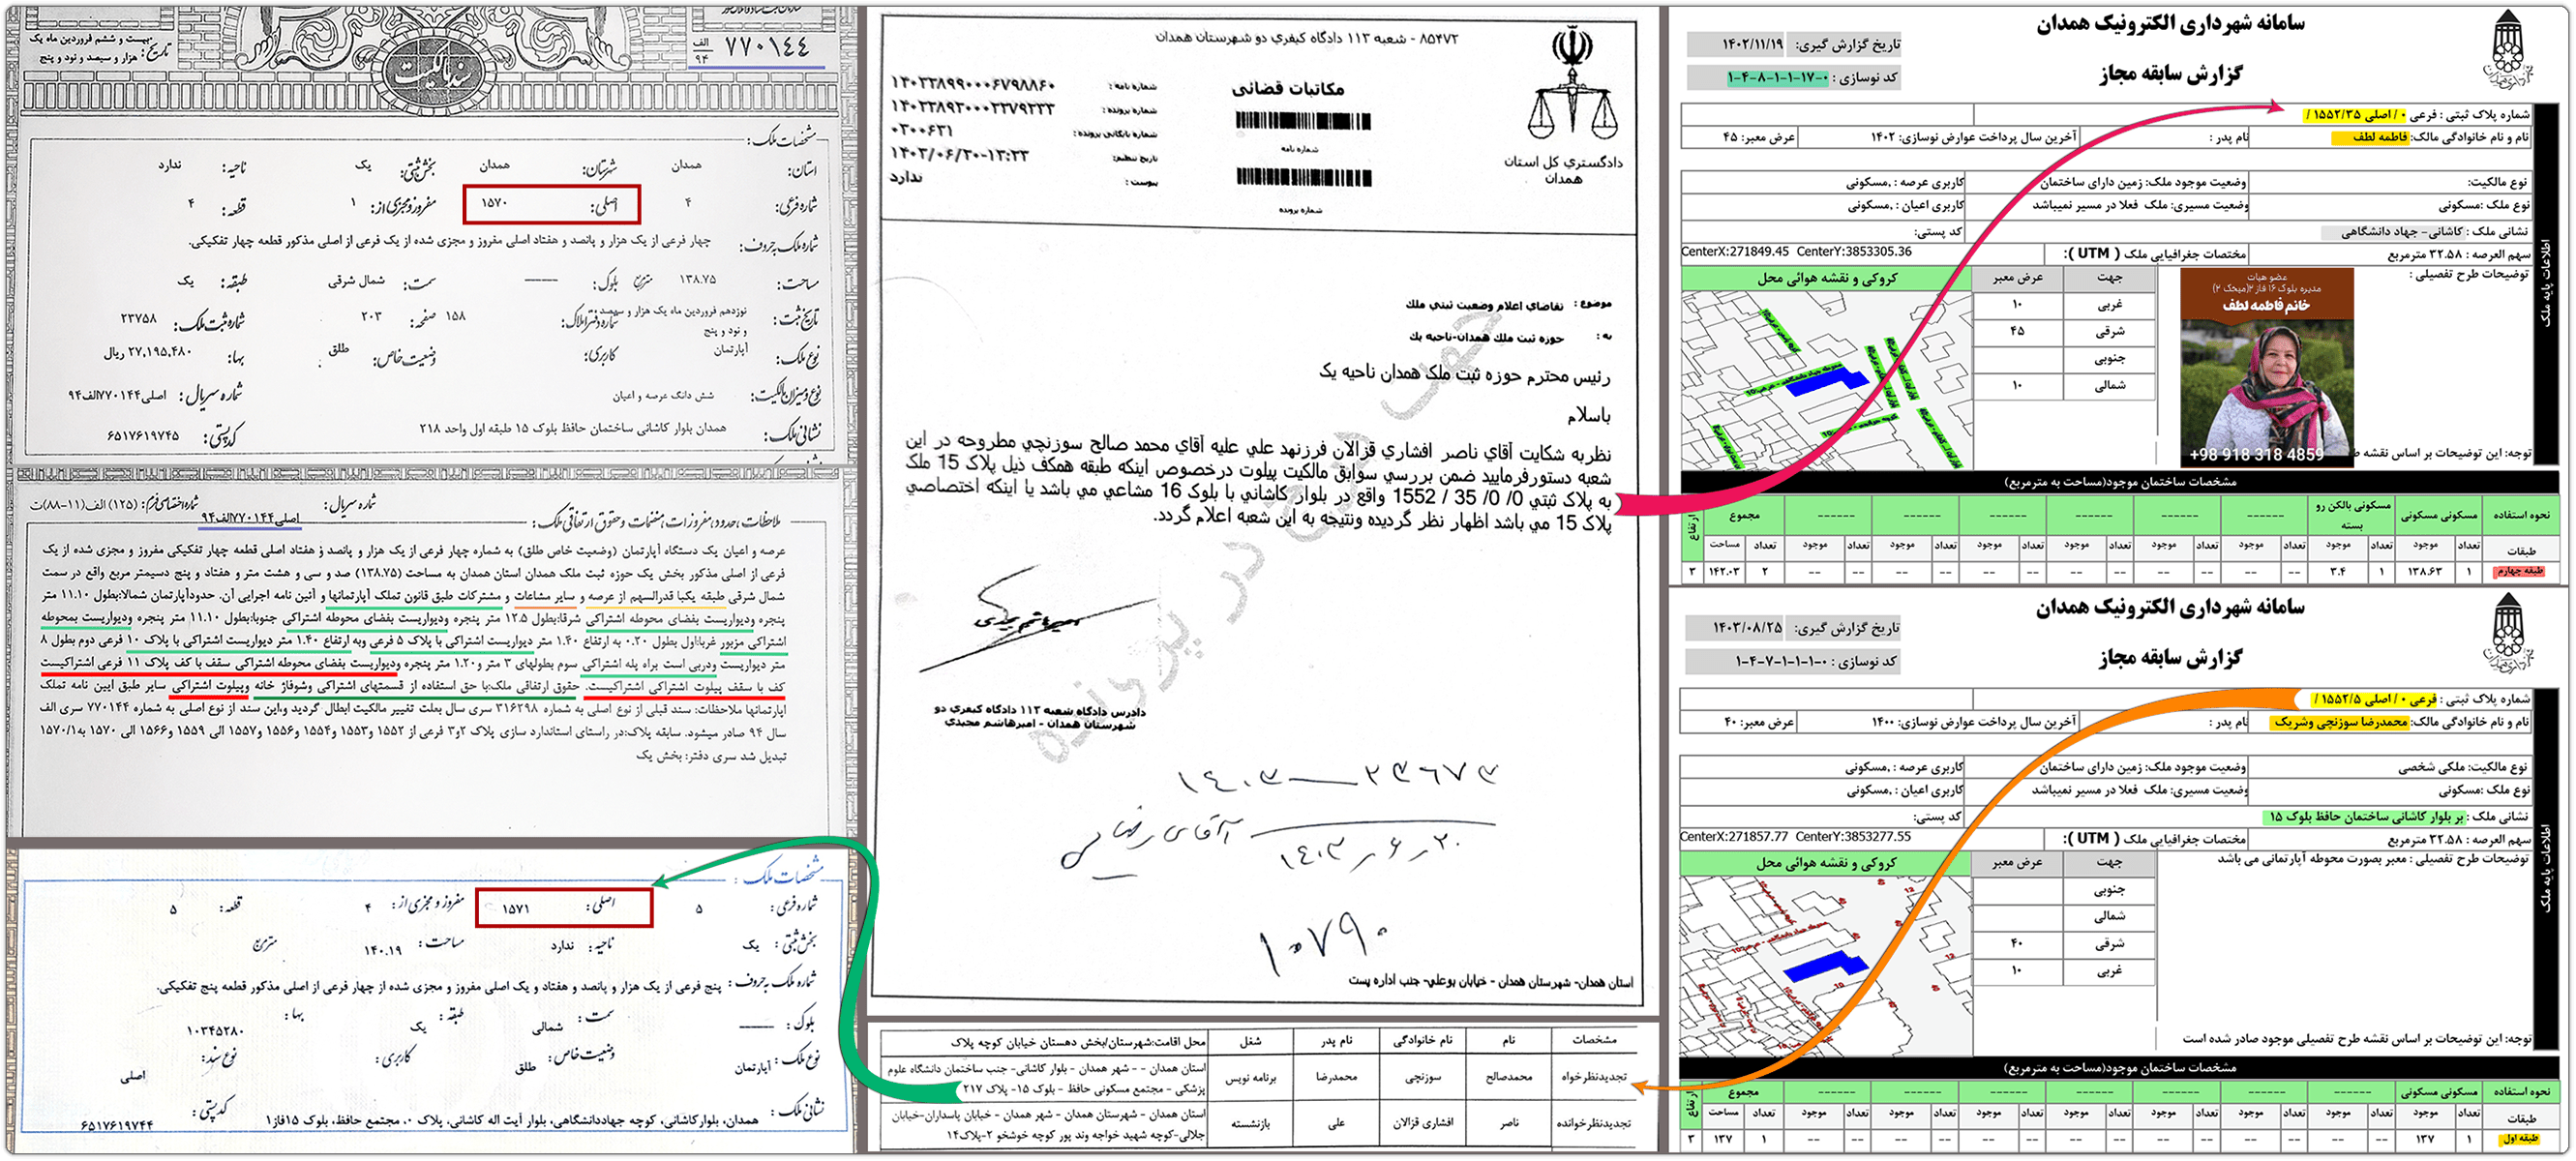 سند مالکیت
۷۷۰۱۴۴
الف
۹۴
تاریخ: بیست و ششم فروردین ماه یک هزار و سیصد و نود و پنج
مشخصات ملک:
استان: همدان شهرستان: همدان بخش ثبتی: یک ناحیه: ندارد
شماره فرعی: ۴ اصلی: ۱۵۷۰ مفروز و مجزی از: ۱ قطعه: ۴
شماره ملک بحروف: چهار فرعی از یک هزار و پانصد و هفتاد اصلی مفروز و مجزی شده از یک فرعی از اصلی مذکور قطعه چهار تفکیکی.
مساحت: ۱۳۸.۷۵ مترمربع بلوک: ------ سمت: شمال شرقی طبقه: یک
تاریخ ثبت: نوزدهم فروردین ماه یک هزار و سیصد و نود و پنج شماره دفتر املاک: ۱۵۸ صفحه: ۲۰۳ شماره ثبت ملک: ۲۳۷۵۸
نوع ملک: آپارتمان کاربری: وضعیت خاص: طلق بها: ۲۷,۱۹۵,۴۸۰ ریال
نوع و میزان مالکیت: شش دانگ عرصه و اعیان شماره سریال: اصلی۷۷۰۱۴۴الف۹۴
نشانی ملک: همدان بلوار کاشانی ساختمان حافظ بلوک ۱۵ طبقه اول واحد ۲۱۸ کدپستی: ۶۵۱۷۶۱۹۷۴۵
شماره سریال: اصلی۷۷۰۱۴۴الف۹۴ شماره اختصاصی فرم: (۱۲۵) الف(۱۱-۸۸)ت
ملاحظات، حدود، مفروزات، منضمات و حقوق ارتفاقی ملک:
عرصه و اعیان یک دستگاه آپارتمان (وضعیت خاص طلق) به شماره چهار فرعی از یک هزار و پانصد و هفتاد اصلی قطعه چهار تفکیکی مفروز و مجزی شده از یک
فرعی از اصلی مذکور بخش یک حوزه ثبت ملک همدان استان همدان به مساحت (۱۳۸.۷۵) صد و سی و هشت متر و هفتاد و پنج دسیمتر مربع واقع در سمت
شمال شرقی طبقه یکبا قدرالسهم از عرصه و سایر مشاعات و مشترکات طبق قانون تملک آپارتمانها و آئین نامه اجرایی آن. حدودآپارتمان شمالا:بطول ۱۱.۱۰ متر
پنجره ودیواریست بفضای محوطه اشتراکی شرقا:بطول ۱۲.۵ متر پنجره ودیواریست بفضای محوطه اشتراکی جنوبا:بطول ۱۱.۱۰ متر پنجره ودیواریست بمحوطه
اشتراکی مزبور غربا:اول بطول ۰.۲۰ به ارتفاع ۱.۴۰ متر دیواریست اشتراکی با پلاک ۵ فرعی وبه ارتفاع ۱.۴۰ متر دیواریست اشتراکی با پلاک ۱۰ فرعی دوم بطول ۸
متر دیواریست ودربی است براه پله اشتراکی سوم بطولهای ۳ متر و۱.۲۰ متر پنجره ودیواریست بفضای محوطه اشتراکی سقف با کف پلاک ۱۱ فرعی اشتراکیست
کف با سقف پیلوت اشتراکی اشتراکیست. حقوق ارتفاقی ملک:با حق استفاده از قسمتهای اشتراکی وشوفاژ خانه وپیلوت اشتراکی سایر طبق ایین نامه تملک
اپارتمانها ملاحظات: سند قبلی از نوع اصلی به شماره ۳۱۶۲۹۸ سری سال بعلت تغییر مالکیت ابطال گردید و،این سند از نوع اصلی به شماره ۷۷۰۱۴۴ سری الف
سال ۹۴ صادر میشود. سابقه پلاک:در راستای استاندارد سازی پلاک ۲و۳ فرعی از ۱۵۵۲ و۱۵۵۳ و۱۵۵۴ و۱۵۵۶ و۱۵۵۷ الی ۱۵۵۹ و۱۵۶۶ الی ۱۵۷۰ به۱۵۷۰/۱
تبدیل شد سری دفتر: بخش یک
مشخصات ملک:
شماره فرعی: ۵ اصلی: ۱۵۷۱ مفروز و مجزی از: ۴ قطعه: ۵
بخش ثبتی: یک ناحیه: ندارد مساحت: ۱۴۰.۱۹ مترمربع
شماره ملک بحروف: پنج فرعی از یک هزار و پانصد و هفتاد و یک اصلی مفروز و مجزی شده از چهار فرعی از اصلی مذکور قطعه پنج تفکیکی.
بلوک: ------ سمت: شمالی طبقه: یک بها: ۱۰۳۴۵۲۸۰
نوع ملک: آپارتمان وضعیت خاص: طلق کاربری: نوع سند: اصلی
نشانی ملک: همدان، بلوارکاشانی، کوچه جهاددانشگاهی، بلوار آیت اله کاشانی، پلاک ۰، مجتمع حافظ، بلوک ۱۵فاز۱ کدپستی: ۶۵۱۷۶۱۹۷۴۴
۸۵۴۷۲ - شعبه ۱۱۳ دادگاه کیفري دو شهرستان همدان
دادگستري کل استان همدان
مکاتبات قضائی
شماره نامه
شماره پرونده
شماره نامه: ۱۴۰۳۳۸۹۹۰۰۰۶۷۹۸۸۶۰
شماره پرونده: ۱۴۰۳۳۸۹۲۰۰۰۳۳۷۹۲۳۳
شماره بایگانی پرونده: ۰۳۰۰۶۳۱
تاریخ تنظیم: ۱۴۰۳/۰۶/۳۰-۱۳:۳۳
پیوست: ندارد
موضوع: تقاضاي اعلام وضعیت ثبتي ملك
به: حوزه ثبت ملك همدان-ناحیه یك
رئیس محترم حوزه ثبت ملک همدان ناحیه یک
باسلام
نظربه شکایت آقاي ناصر افشاري قزالان فرزندعلي علیه آقاي محمد صالح سوزنچي مطروحه در این
شعبه دستورفرمایید ضمن بررسي سوابق مالکیت پیلوت درخصوص اینکه طبقه همکف ذیل پلاک 15 ملک
به پلاک ثبتي 0/ 0/ 35 / 1552 واقع در بلوار کاشاني با بلوک 16 مشاعي مي باشد یا اینکه اختصاصي
پلاک 15 مي باشد اظهار نظر گردیده ونتیجه به این شعبه اعلام گردد.
جهت درج در پرونده
دادرس دادگاه شعبه ۱۱۳ دادگاه کیفري دو
شهرستان همدان - امیرهاشم مجیدي
۱۴۰۳ — ۲۳۶۷۳
آقای رضایی
۱۴۰۳/۶/۳۰
۱۰۷۹۰
استان همدان- شهرستان همدان - خیابان بوعلي- جنب اداره پست
مشخصات نام نام خانوادگی نام پدر شغل محل اقامت:شهرستان/بخش دهستان خیابان کوچه پلاک
تجدیدنظرخواه محمدصالح سوزنچی محمدرضا برنامه نویس استان همدان - - شهر همدان - بلوار کاشانی- جنب ساختمان دانشگاه علوم پزشکی - مجتمع مسکونی حافظ - بلوک ۱۵- پلاک ۲۱۷
تجدیدنظرخوانده ناصر افشاری قزالان علی بازنشسته استان همدان - شهرستان همدان - شهر همدان - خیابان پاسداران-خیابان جلالی-کوچه شهید خواجه وند پور کوچه خوشخو ۲-پلاک۱۴
سامانه شهرداری الکترونیک همدان
گزارش سابقه مجاز
تاریخ گزارش گیری: ۱۴۰۲/۱۱/۱۹
کد نوسازی: ۱-۴-۸-۱-۱-۱۷-۰
شماره پلاک ثبتی : فرعی ۰ / اصلی ۱۵۵۲/۳۵ /
نام و نام خانوادگی مالک: فاطمه لطف نام پدر : آخرین سال پرداخت عوارض نوسازی: ۱۴۰۲ عرض معبر: ۴۵
نوع مالکیت: وضعیت موجود ملک: زمین دارای ساختمان کاربری عرصه : ,مسکونی
نوع ملک :مسکونی وضعیت مسیری: ملک فعلا در مسیر نمیباشد کاربری اعیان : ,مسکونی
نشانی ملک : کاشانی- جهاد دانشگاهی کد پستی:
سهم العرصه : ۳۲.۵۸ مترمربع مختصات جغرافیایی ملک ( UTM ): CenterX:271849.45 CenterY:3853305.36
توضیحات طرح تفصیلی : جهت عرض معبر کروکی و نقشه هوائی محل
غربی ۱۰
شرقی ۴۵
جنوبی
شمالی ۱۰
عضو هیات
مدیره بلوک ۱۶ فاز ۲(میخک ۲)
خانم فاطمه لطف
+98 918 318 4859
توجه: این توضیحات بر اساس نقشه ط
اطلاعات پایه ملک
مشخصات ساختمان موجود(مساحت به مترمربع)
نحوه استفاده مسکونی مسکونی مسکونی بالکن رو بسته ------ ------ ------ ------ ------ مجموع ارتفاع
طبقات تعداد موجود تعداد موجود تعداد موجود تعداد موجود تعداد موجود تعداد موجود تعداد موجود تعداد مساحت
طبقه چهارم ۱ ۱۳۸.۶۳ ۱ ۳.۴ -- -- -- -- -- -- -- -- -- -- ۲ ۱۴۲.۰۳ ۳
سامانه شهرداری الکترونیک همدان
گزارش سابقه مجاز
تاریخ گزارش گیری: ۱۴۰۳/۰۸/۲۵
کد نوسازی : ۱-۴-۷-۱-۱-۱-۰
شماره پلاک ثبتی : فرعی ۰ / اصلی ۱۵۵۲/۵ /
نام و نام خانوادگی مالک: محمدرضا سوزنچی وشریک نام پدر : آخرین سال پرداخت عوارض نوسازی: ۱۴۰۰ عرض معبر: ۴۰
نوع مالکیت: ملکی شخصی وضعیت موجود ملک: زمین دارای ساختمان کاربری عرصه : ,مسکونی
نوع ملک :مسکونی وضعیت مسیری: ملک فعلا در مسیر نمیباشد کاربری اعیان : ,مسکونی
نشانی ملک : بر بلوار کاشانی ساختمان حافظ بلوک ۱۵ کد پستی:
سهم العرصه : ۳۲.۵۸ مترمربع مختصات جغرافیایی ملک ( UTM ): CenterX:271857.77 CenterY:3853277.55
توضیحات طرح تفصیلی : معبر بصورت محوطه آپارتمانی می باشد جهت عرض معبر کروکی و نقشه هوائی محل
جنوبی
شمالی
شرقی ۴۰
غربی ۱۰
توجه: این توضیحات بر اساس نقشه طرح تفصیلی موجود صادر شده است
اطلاعات پایه ملک
مشخصات ساختمان موجود(مساحت به مترمربع)
نحوه استفاده مسکونی مسکونی ------ ------ ------ ------ ------ ------ مجموع ارتفاع
طبقات تعداد موجود تعداد موجود تعداد موجود تعداد موجود تعداد موجود تعداد موجود تعداد موجود تعداد مساحت
طبقه اول ۱ ۱۳۷ -- -- -- -- -- -- -- -- -- -- -- -- ۱ ۱۳۷ ۳